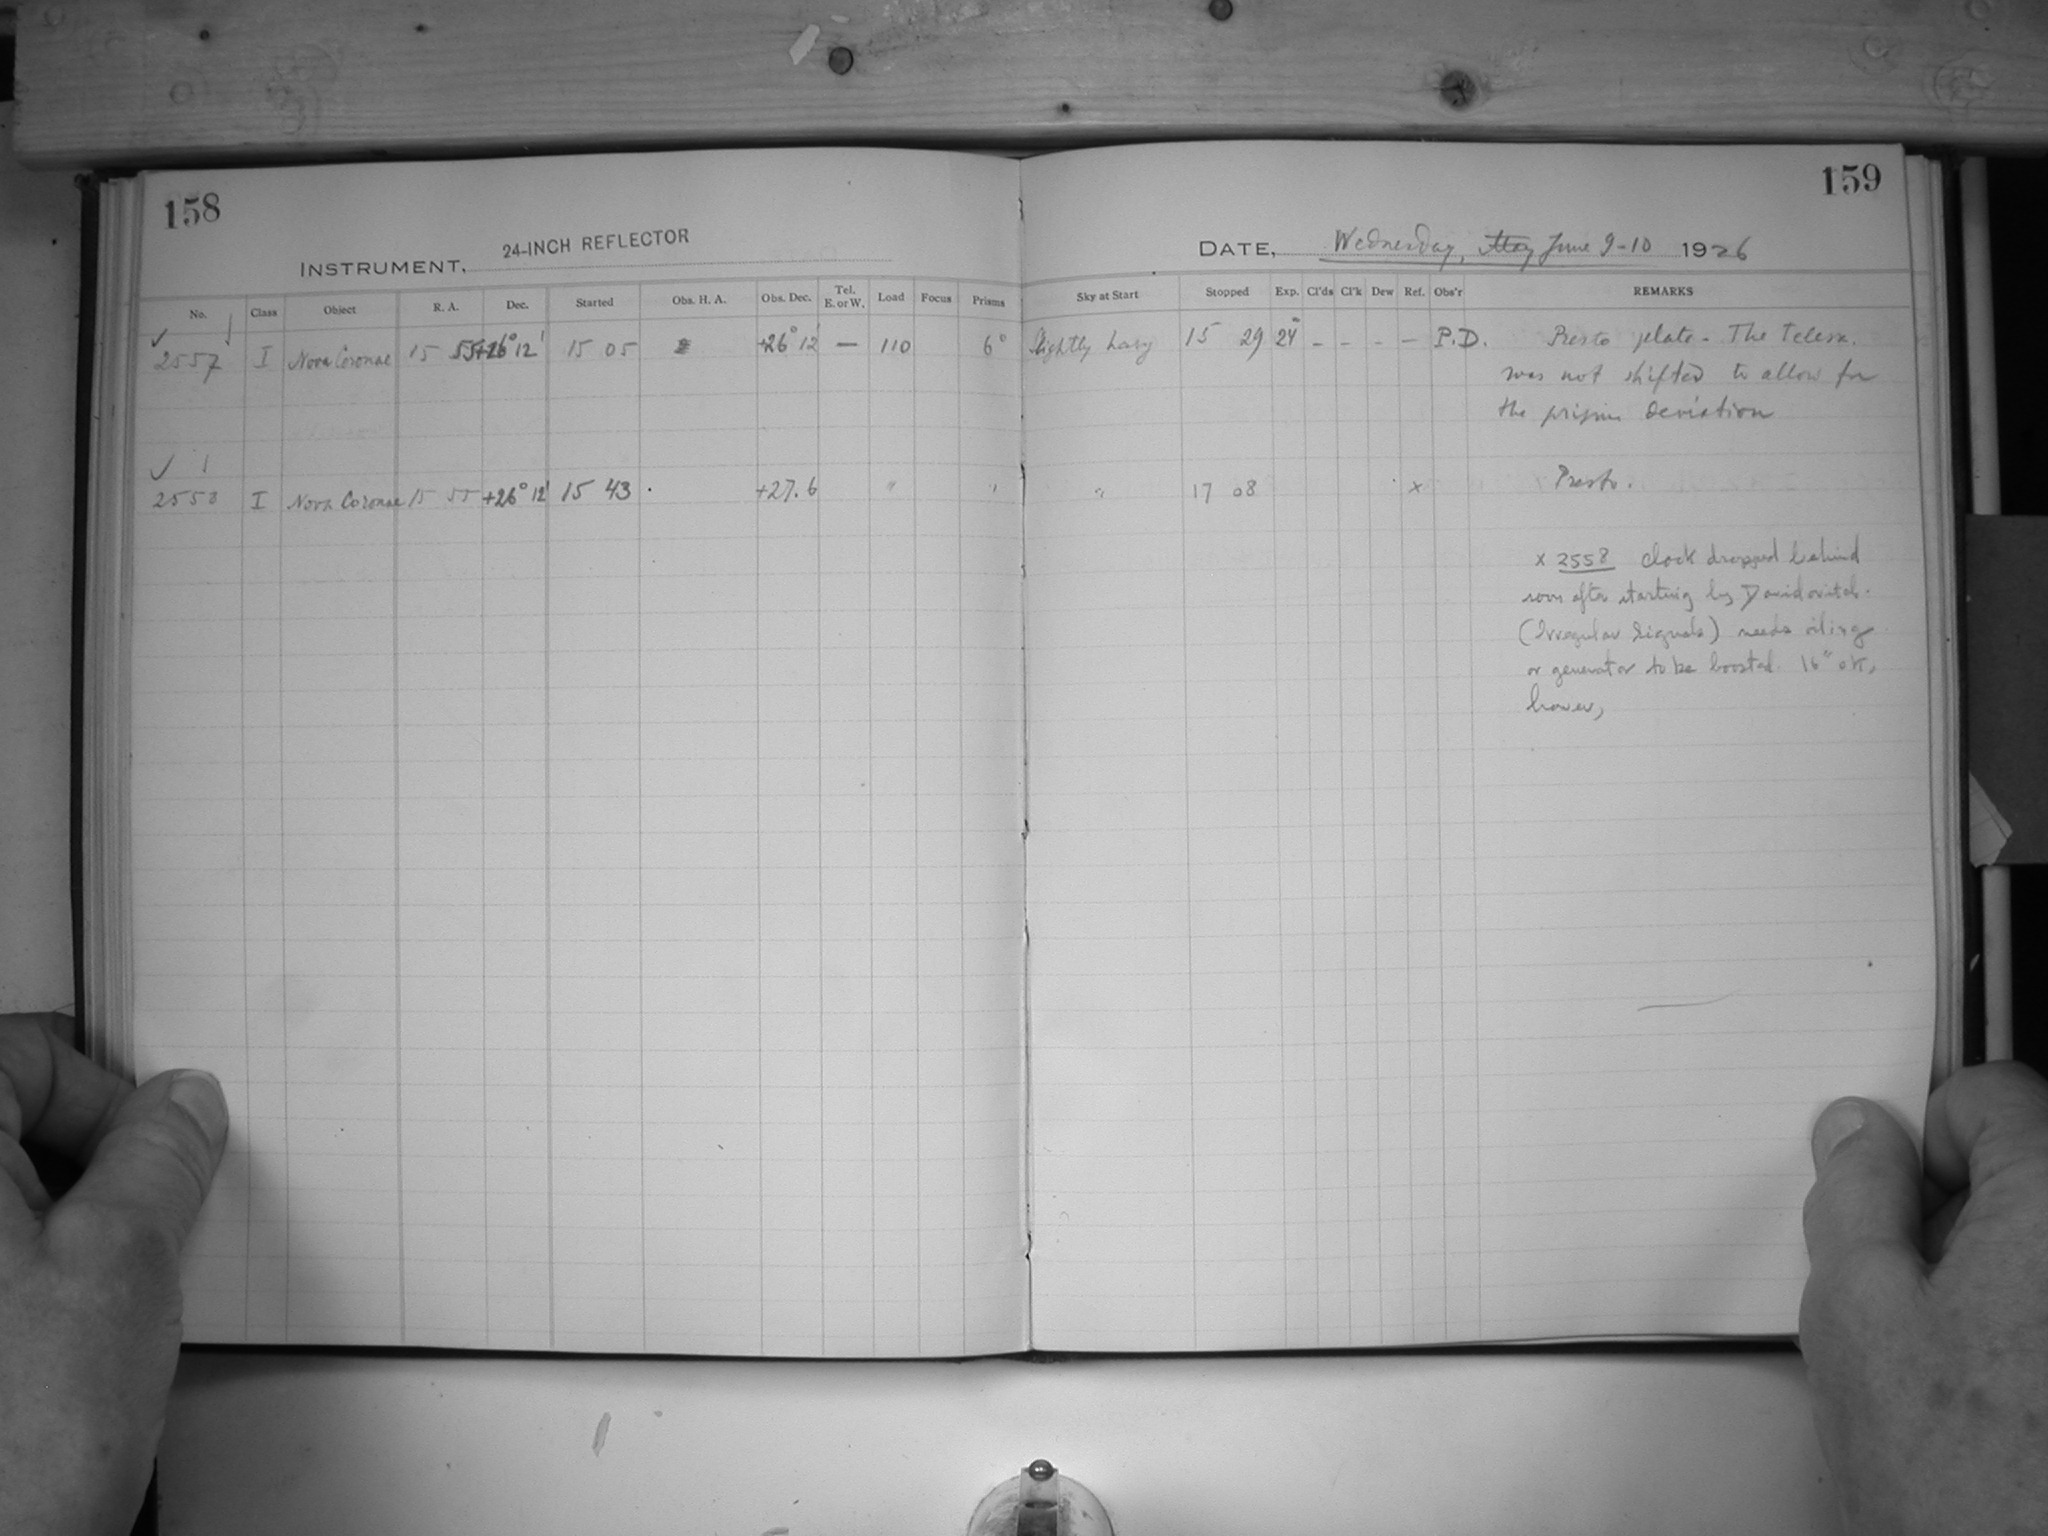 158
159
INSTRUMENT, 24-INCH REFLECTOR
DATE, Wednesday, May June 9-10 1926
No. Class Object R. A. Dec. Started Obs. H. A. Obs. Dec. Tel. E. or W. Load Focus Prisms Sky at Start Stopped Exp. Cl'ds Cl'k Dew Ref. Obs'r REMARKS
✓ 2557 I Nova Coronae 15 55 +26° 12' 15 05 +26° 12' — 110 6° Slightly hazy 15 29 24 - - - — P.D. Presto plate - The Telesc.
was not shifted to allow for
the prism deviation
✓ 2558 I Nova Coronae 15 55 +26° 12' 15 43 +27.6 " " " 17 08 x Presto.
x 2558 Clock dropped behind
soon after starting by Davidovitch.
(Irregular Signals) needs oiling
or generator to be boosted. 16" OK,